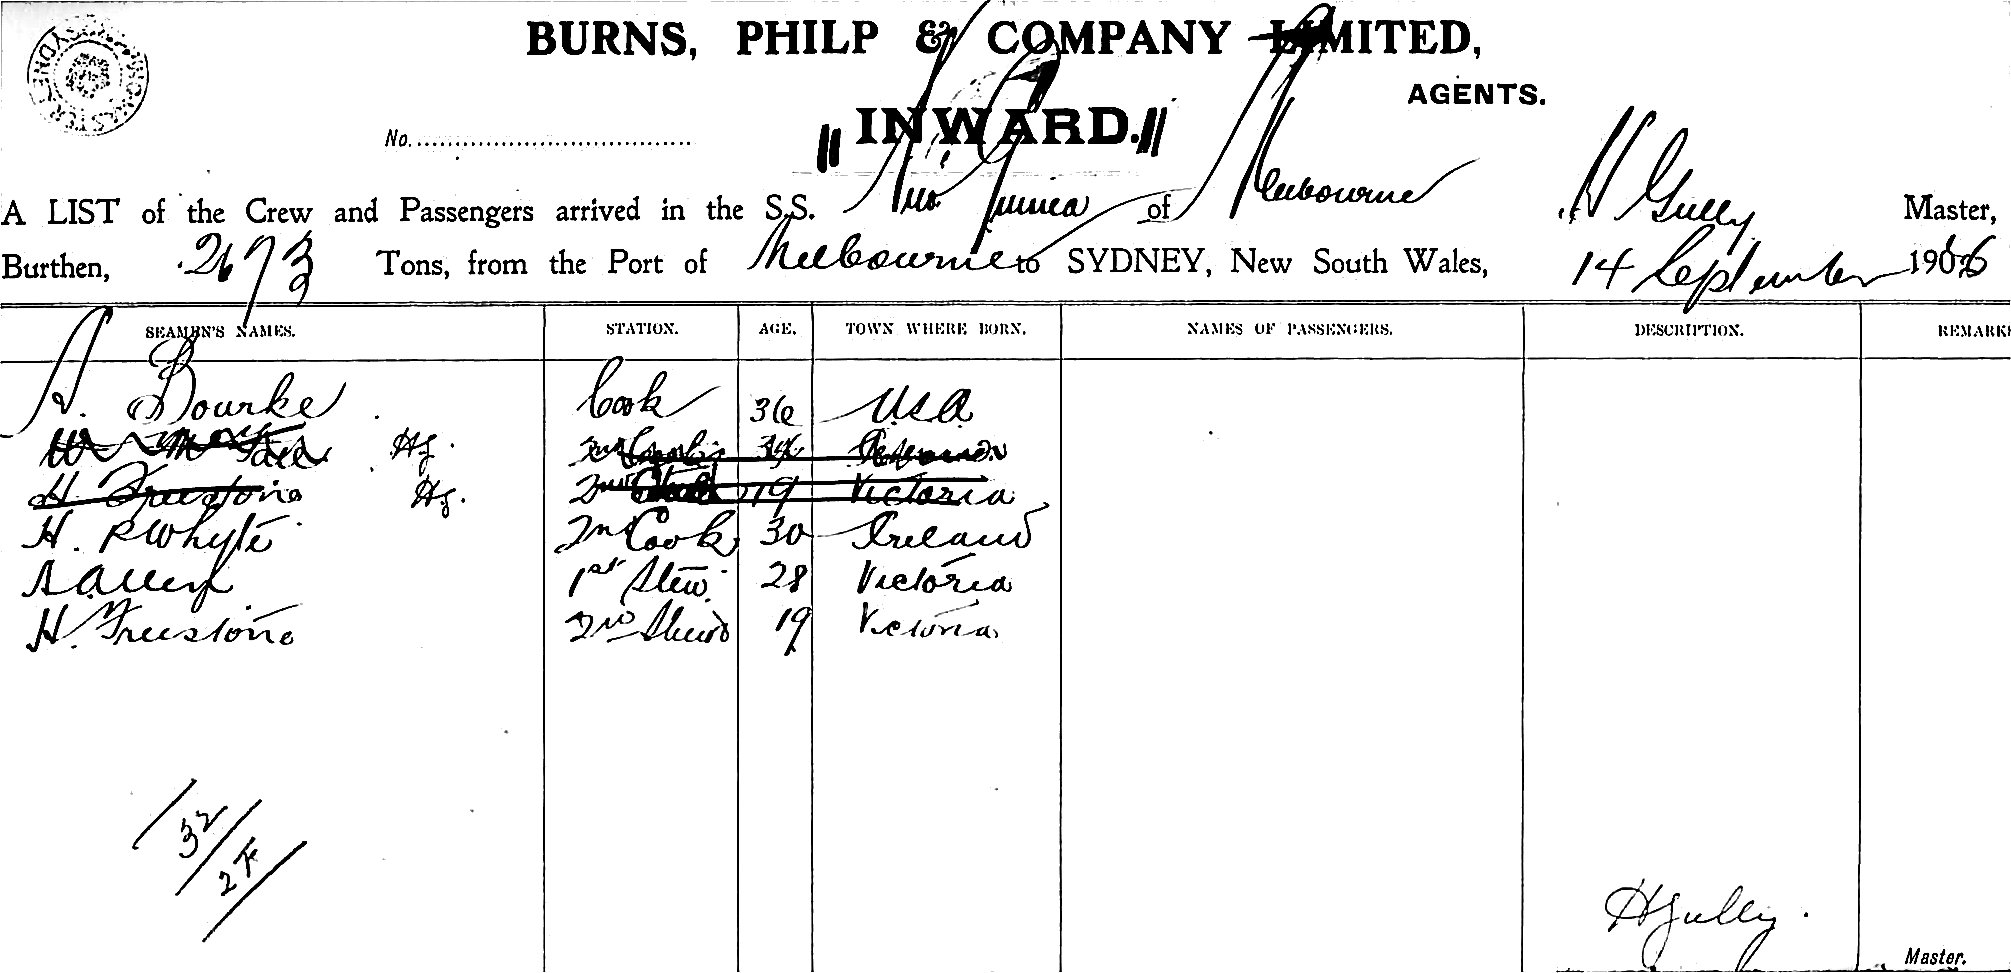 BURNS, PHILP & COMPANY LIMITED,
AGENTS.
"INWARD."
No.
A LIST of the Crew and Passengers arrived in the S.S. New Guinea of Melbourne H Gully Master,
Burthen, 2673 Tons, from the Port of Melbourne to SYDNEY, New South Wales, 14 September 1906
SEAMEN'S NAMES. STATION. AGE. TOWN WHERE BORN. NAMES OF PASSENGERS. DESCRIPTION. REMARKS
A. Bourke Cook 36 U.S.A
W Hg. 2nd 34
H. Freestone Hg. 2nd 19 Victoria
H. R Whyte 2nd Cook 30 Ireland
A Allen 1st Stew. 28 Victoria
H. Freestone 2nd Stewd 19 Victoria
32
2F
H Gully.
Master.